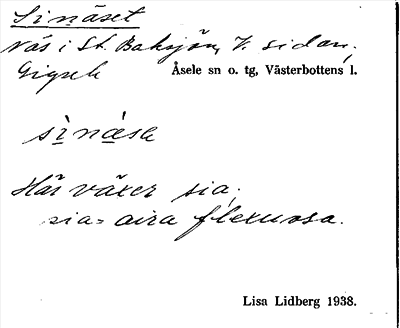 Sinäset
näs i St. Baksjön, V. sidan,
Gigsele Åsele sn o. tg, Västerbottens l.
sìnæ̀sə
Här växer sia;
sia = aira flexuosa.
Lisa Lidberg 1938.